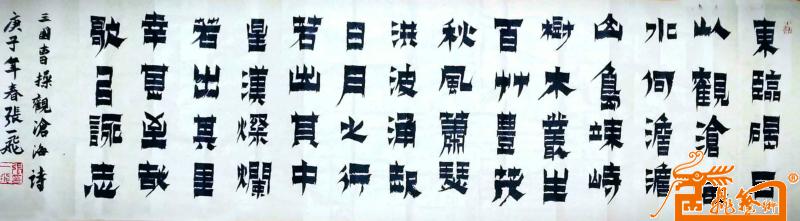 東臨碣石
以觀滄海
水何澹澹
山島竦峙
樹木叢生
百艸豐茂
秋風蕭瑟
洪波涌起
日月之行
若出其中
星漢燦爛
若出其里
幸甚至哉
歌以詠志
三國曹操觀滄海詩
庚子年春張一飛